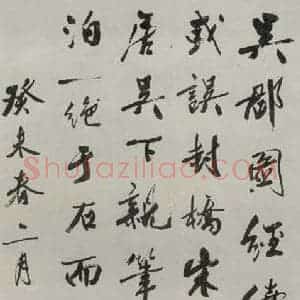 吳郡圖經續
或誤封橋朱
居吳下親筆
泊一絕于石而
癸未春二月
Shufaziliao.com